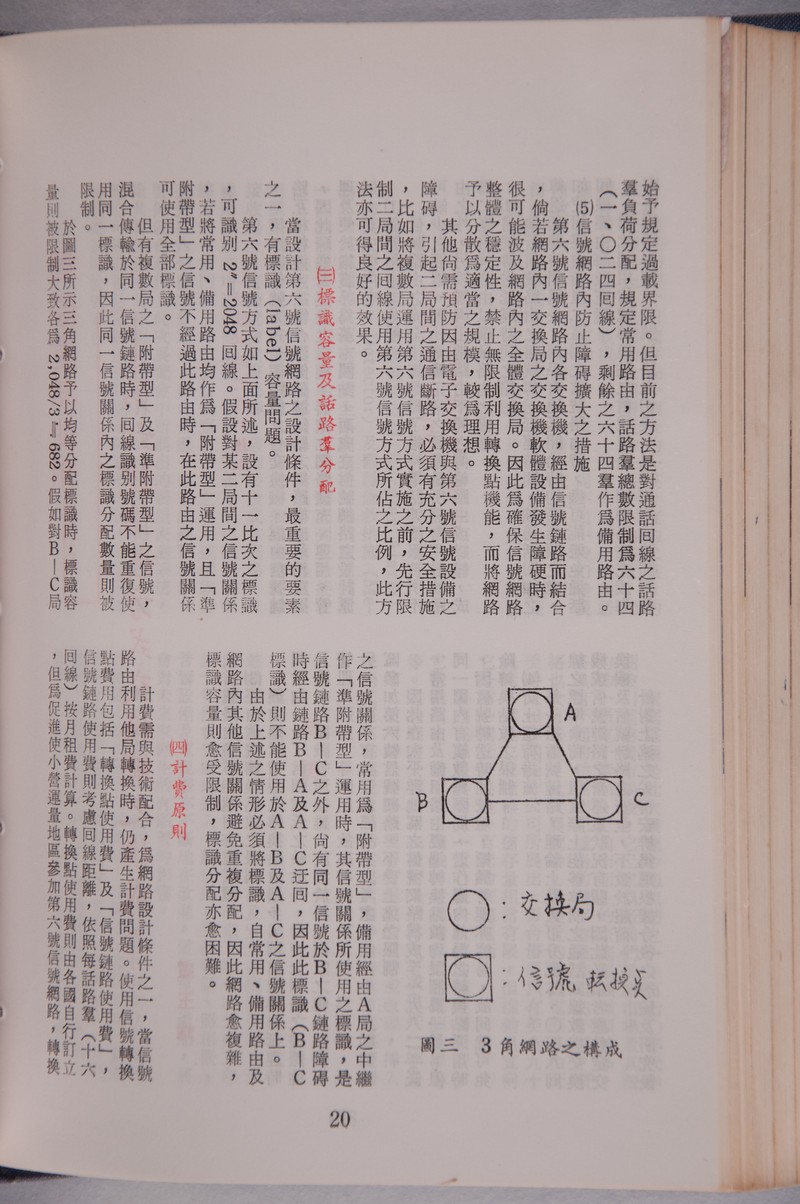 始予規定過載界限。但目前之方法是對通話回線之話路
羣負荷分配，規定常用路由，話路羣總數限制爲六十四
（一、〇二四回線），剩餘之六十四羣作爲備用路由。
⑸信號網路內防止障碍擴大之措施
第六號信號網路內各交換機，經由信號鏈路而結合
，倘若網路內一交換局之交換機軟體設備發生障硬時，
很可能波及網路內之全體交換局。因此爲確保信號網路
整體之穩定性，禁止無限制利用轉換點機能，而將網路
予以分散爲適當之規模，較爲理想。
其他尙需預防因由電子交換機與第六號信號設備之
障碍，引起二局間之通信斷路，必須有充分之安全措施
，比如將複數局運用第六號信號方式實施之前，先行限
制二局間之回線使用第六號信號方式所佔之比例，此方
法亦可得良好的效果。
㈢標識容量及話路羣分配
當設計第六號信號網路之設計條件，最重要的要素
之一，有標識（label）容量問題。
第六號信號方式如上面所述，設有十一比次之標識
，可識別 2¹¹＝2048 回線。假設對某二局間之信號關係
，若將常用、備用路由均作爲「附帶型」運用，且「準
附帶型」之信號不經過此路由時，在此路由之信號關係
可使用全部標識。
但有複數局之「附帶型」及「準附帶型」之信號，
混合傳輸於同一信號鏈路時，回線識別號碼不能重復使
用同一標識，因此同一信號關係內之標識分配數量則被
限制。
於圖三所示三角網路予以均等分配標識時，標識容
量則被限制大致各爲 2,048/3≒682。假如對B－C局
A
B
C
：交換局
：信號転換点
圖三　3角網路之構成
之信號關係，常用爲「附帶型」，備用經由A局之中繼
作「準附帶型」運用時，其信號關係所使用之標識，是
信號鏈路B－C之外，尙有同一信號於B－C鏈路障碍
時經由鏈路B－A及A－C迂回，因此此標識（B－C
標識）則不能使用於A－B及A－C之信號關係上。
由於上述之情形必須將標識，自常用、備用路由及
網路內其他信號關係避免重複分配，因此網路愈複雜，
標識容量則愈受限制，標識分配亦愈困難。
㈣計費原則
計費需與技術配合，爲網路設計條件之一，當信號
路由利用他局轉換時，仍產生計費問題。使用信號轉換
點費用包括「轉換點使用費」及「信號鏈路使用費」，
信號鏈路使用費則考慮回線距離，依照每話路羣（十六
回線）按月租費計算。轉換點使用費則由各國自行訂立
，但爲促進使小營運量地區參加第六號信號網路，轉換
20